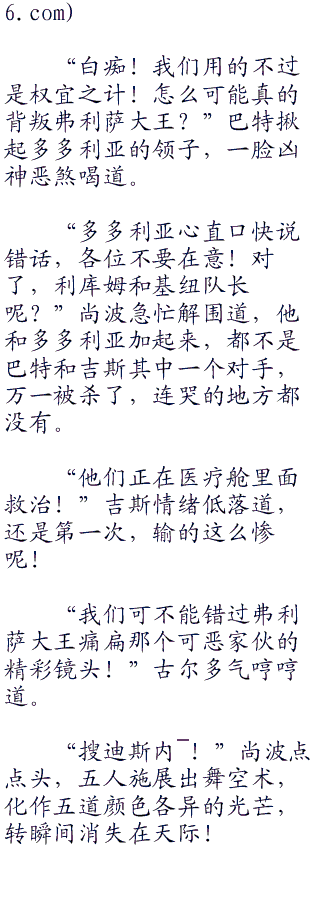 6.com)
“白痴！我们用的不过
是权宜之计！怎么可能真的
背叛弗利萨大王？”巴特揪
起多多利亚的领子，一脸凶
神恶煞喝道。
“多多利亚心直口快说
错话，各位不要在意！对
了，利库姆和基纽队长
呢？”尚波急忙解围道，他
和多多利亚加起来，都不是
巴特和吉斯其中一个对手，
万一被杀了，连哭的地方都
没有。
“他们正在医疗舱里面
救治！”吉斯情绪低落道，
还是第一次，输的这么惨
呢！
“我们可不能错过弗利
萨大王痛扁那个可恶家伙的
精彩镜头！”古尔多气哼哼
道。
“搜迪斯内¯！”尚波点
点头，五人施展出舞空术，
化作五道颜色各异的光芒，
转瞬间消失在天际！